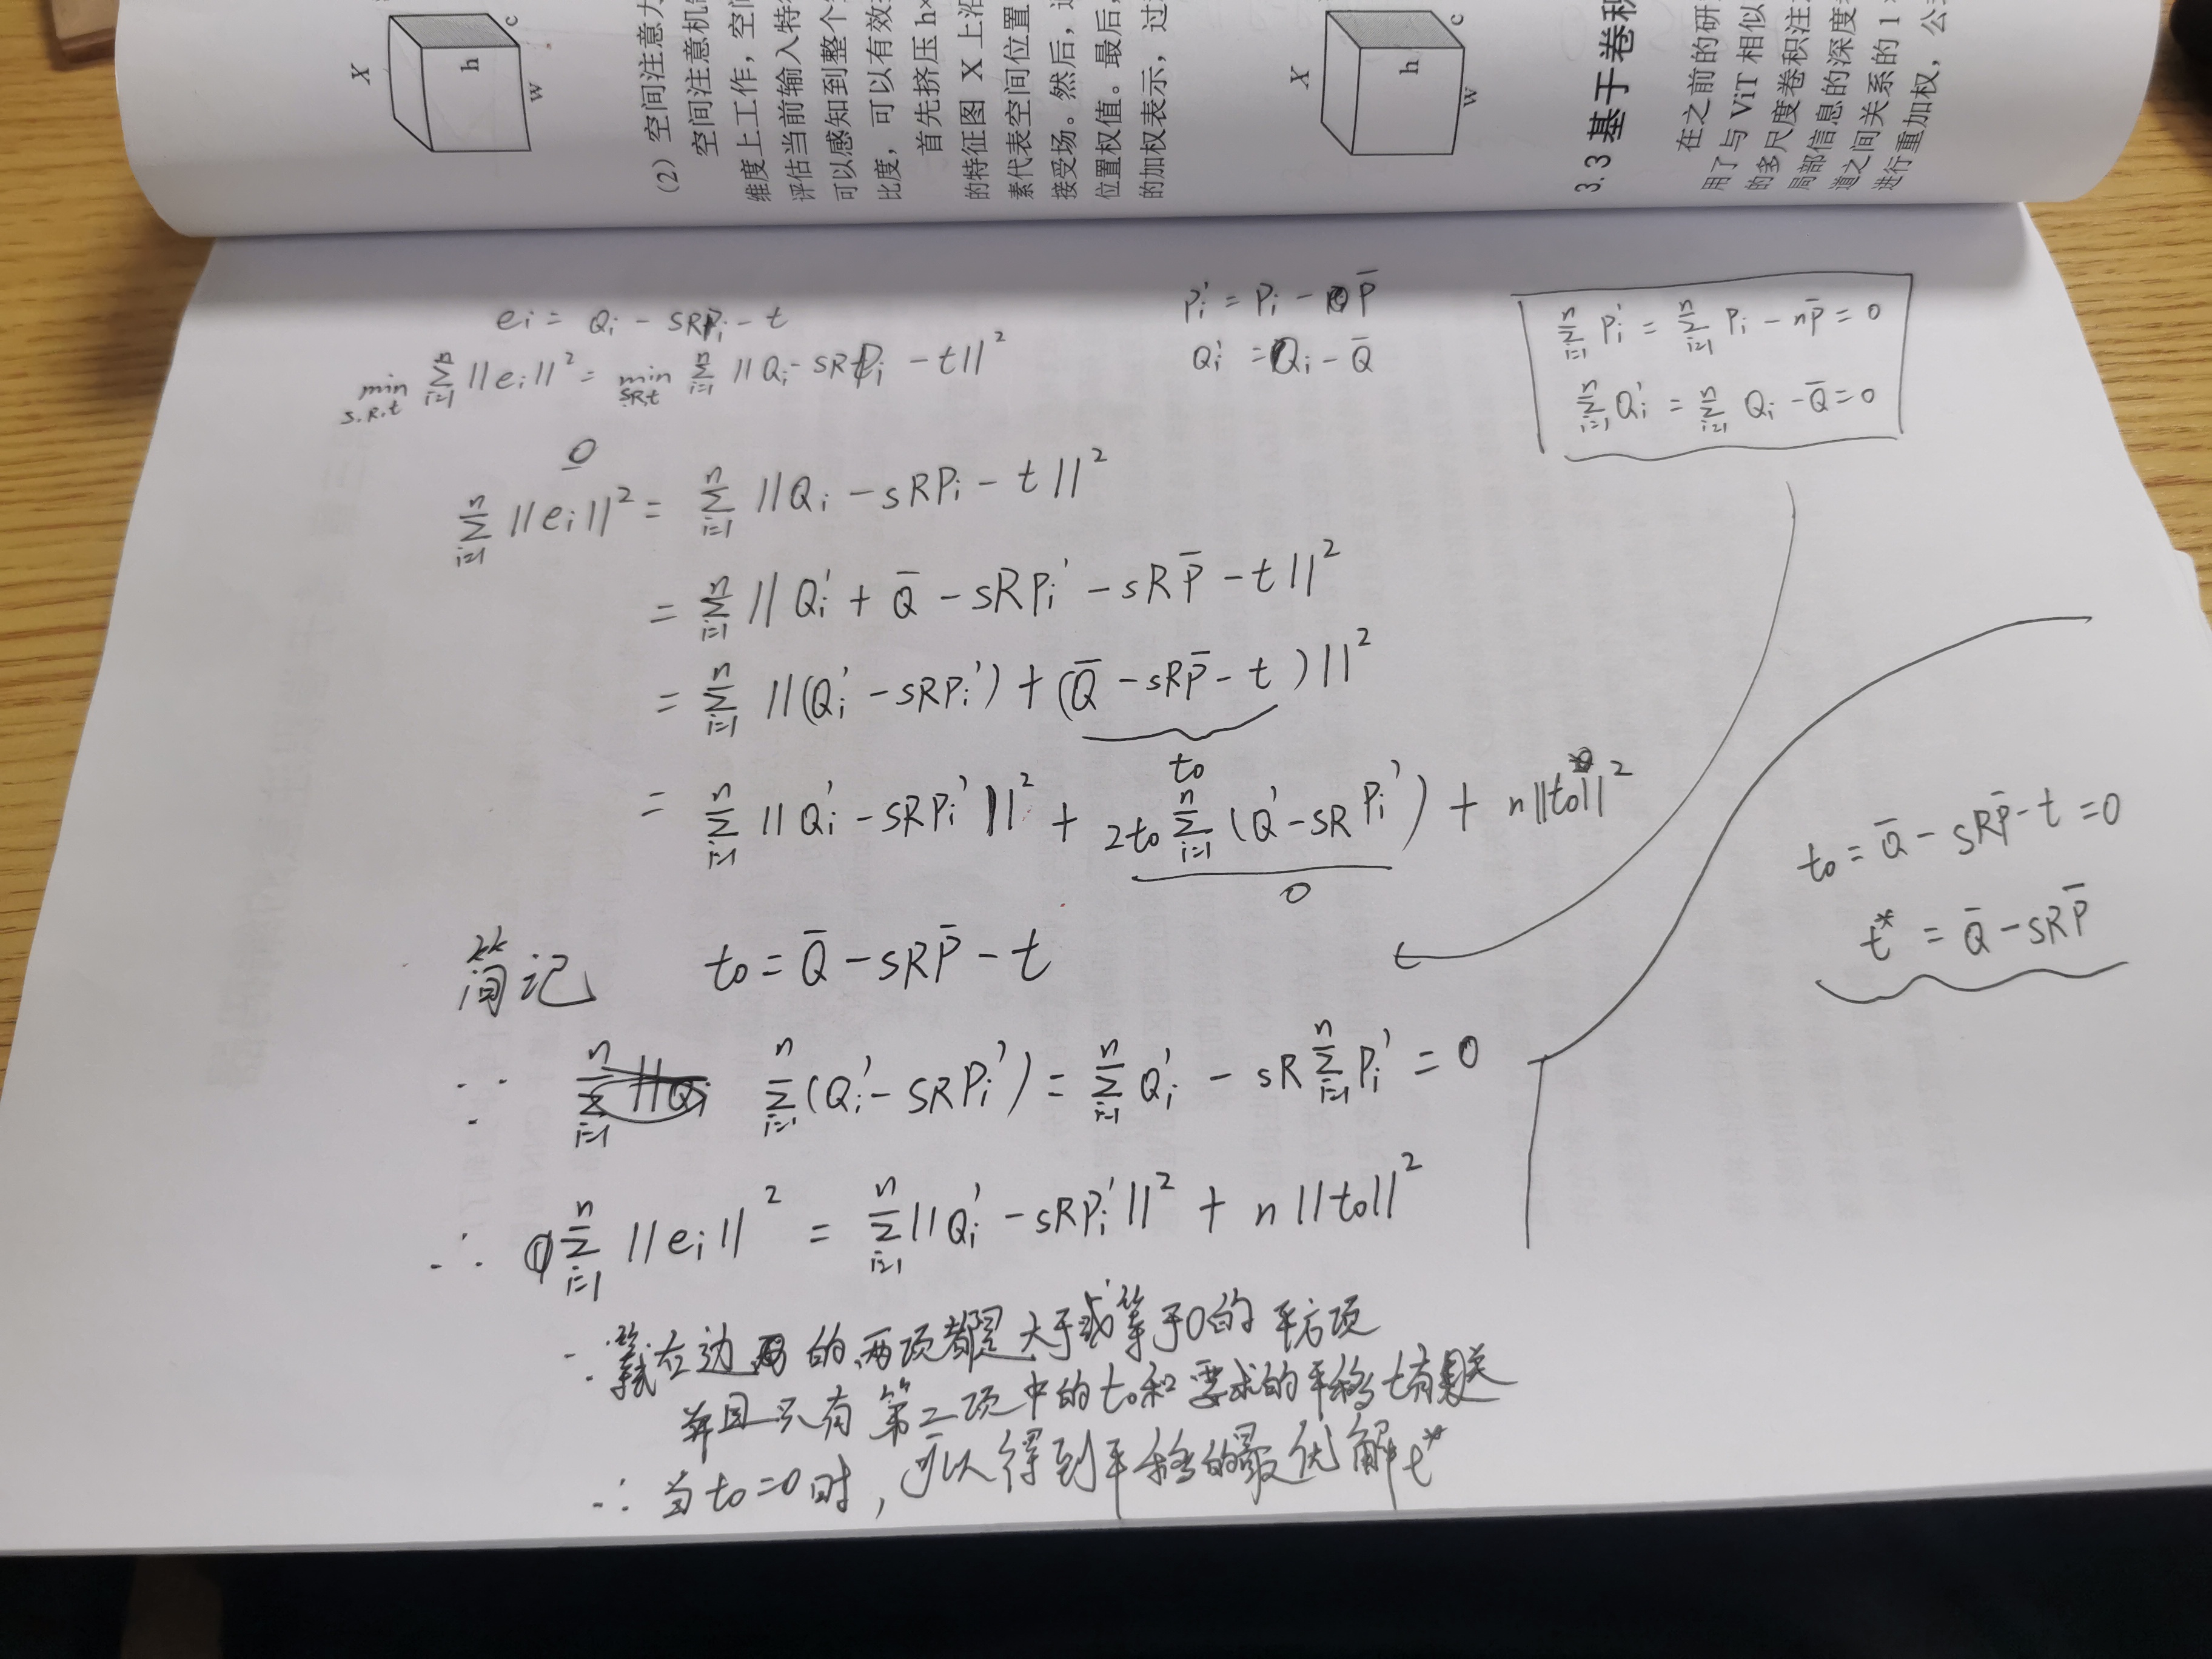 X
h
w
c
(2) 空间注意力
空间注意机制
维度上工作，空间
评估当前输入特征
可以感知到整个
比度，可以有效
首先挤压 h×
的特征图 X 上沿
素代表空间位置
接受场。然后，通
位置权值。最后，
的加权表示，过
X
h
w
c
3.3 基于卷积
在之前的研
用了与 ViT 相似
的多尺度卷积注
局部信息的深度
道之间关系的 1×
进行重加权，公
ei = Qi - sRPi - t
min s.R.t Σ(i=1..n) ||ei||² = min s.R.t Σ(i=1..n) ||Qi - sRPi - t||²
Pi' = Pi - P̄
Qi' = Qi - Q̄
Σ(i=1..n) Pi' = Σ(i=1..n) Pi - nP̄ = 0
Σ(i=1..n) Qi' = Σ(i=1..n) Qi - Q̄ = 0
Σ(i=1..n) ||ei||² = Σ(i=1..n) ||Qi - sRPi - t||²
= Σ(i=1..n) ||Qi' + Q̄ - sRPi' - sRP̄ - t||²
= Σ(i=1..n) ||(Qi' - sRPi') + (Q̄ - sRP̄ - t)||²
t0
= Σ(i=1..n) ||Qi' - sRPi'||² + 2t0 Σ(i=1..n) (Q' - sRPi') + n||t0||²
0
t0 = Q̄ - sRP̄ - t = 0
t* = Q̄ - sRP̄
简记 t0 = Q̄ - sRP̄ - t
∵ Σ(i=1..n) (Qi' - sRPi') = Σ(i=1..n) Qi' - sR Σ(i=1..n) Pi' = 0
∴ Σ(i=1..n) ||ei||² = Σ(i=1..n) ||Qi' - sRPi'||² + n||t0||²
∵ 等式右边的两项都是大于或等于0的平方项
并且只有第二项中的t0和要求的平移t有关
∴ 当t0=0时，可以得到平移的最优解t*